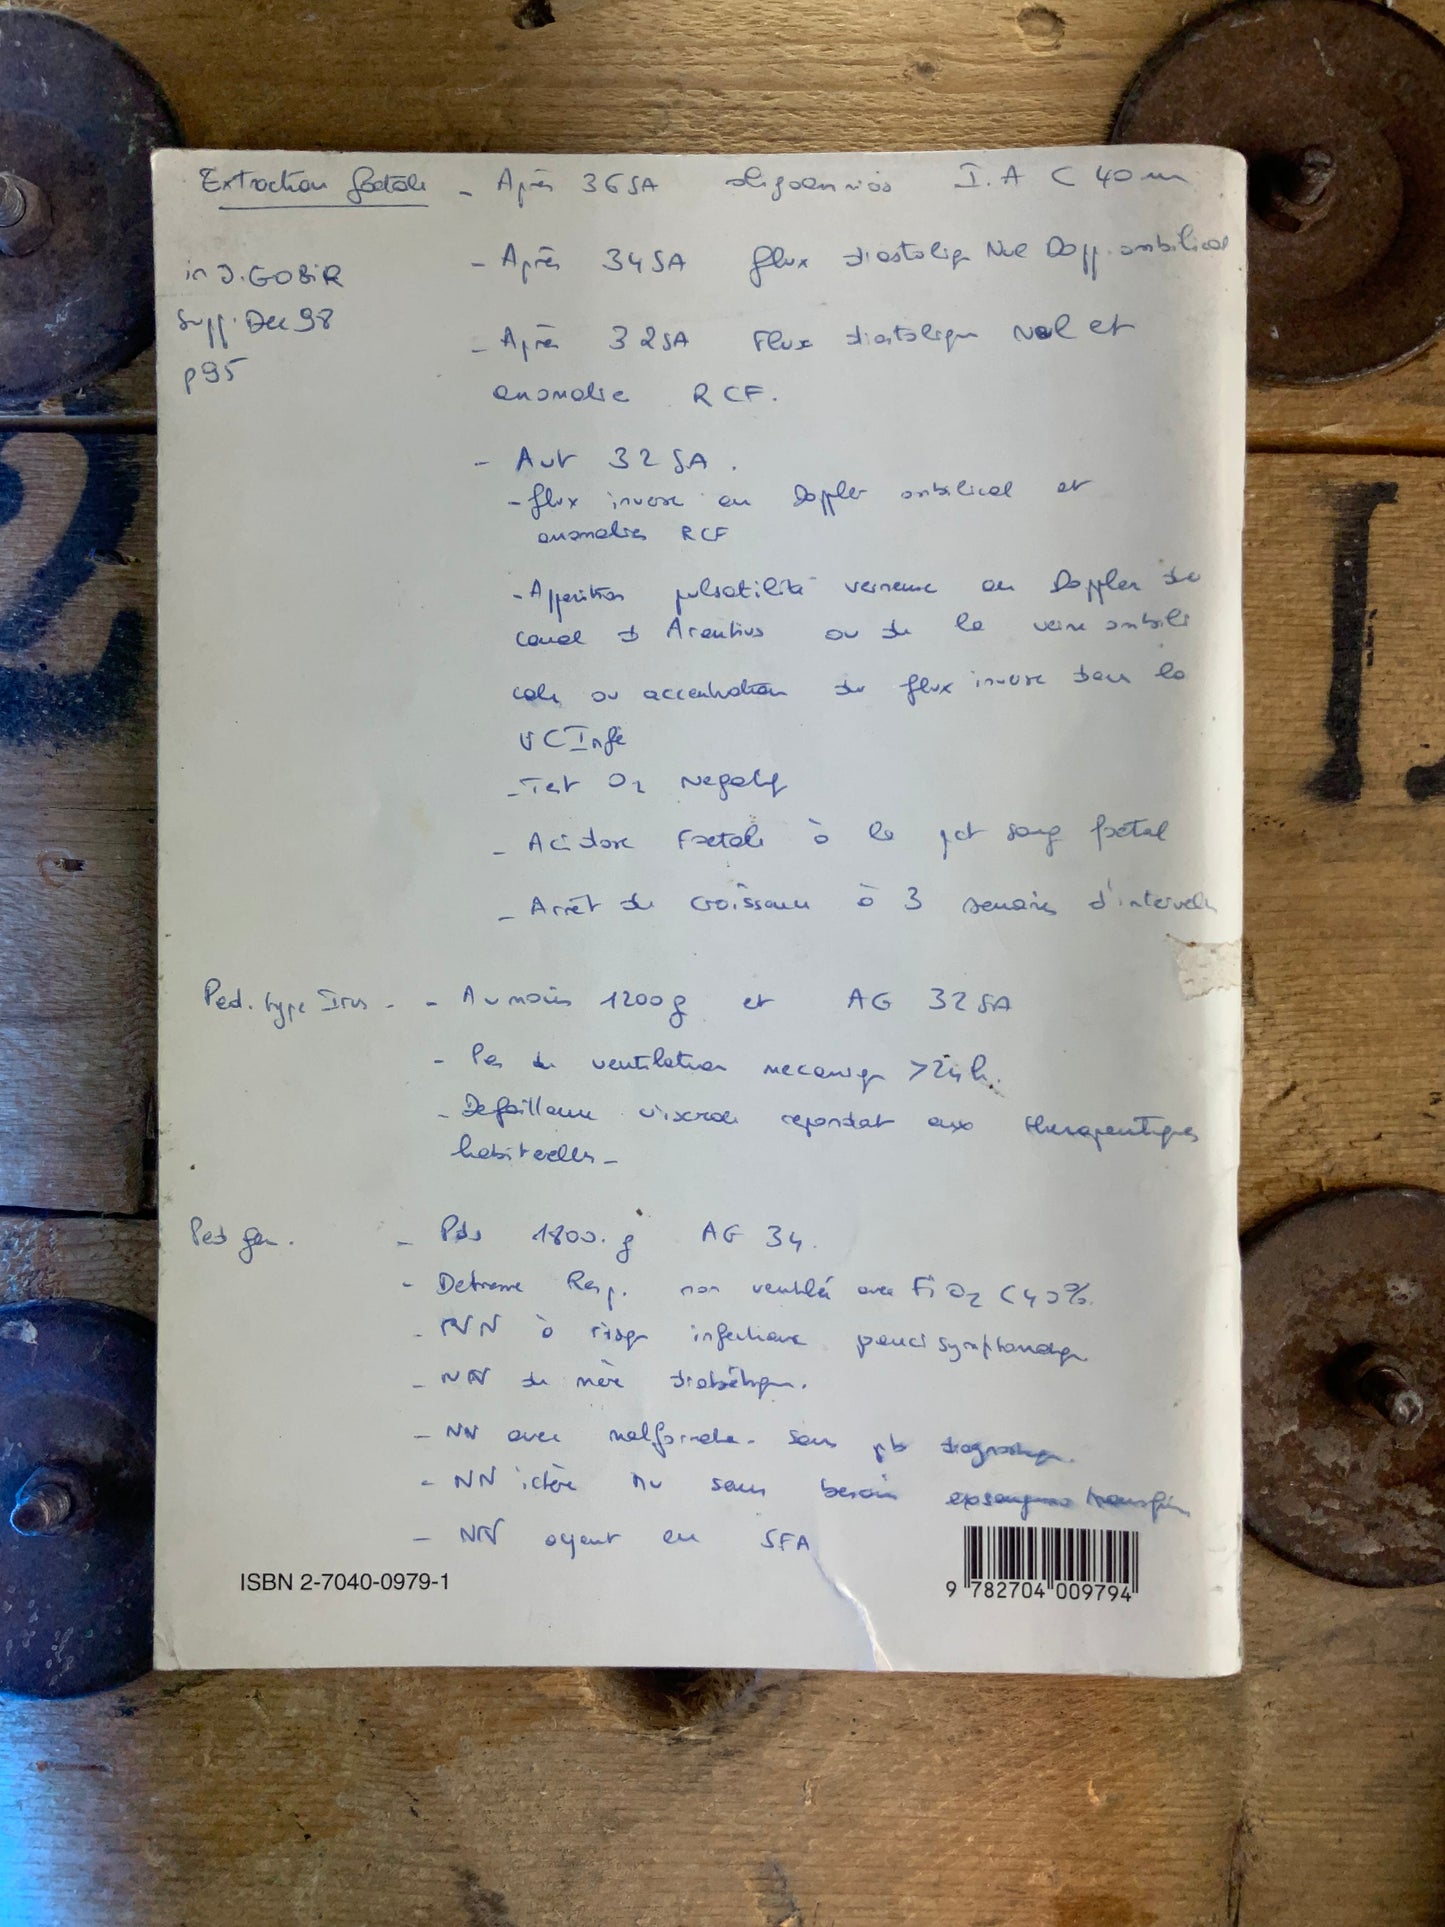 Extraction foetale - Après 36SA oligoamnios I.A < 40 mm
- Après 34SA flux diastoliq Nul Dopp. ombilical
in J.GOBiR
Supp. Dec 98
- Après 32SA Flux diastolique Nul et
p95
anomalie RCF.
- Avt 32SA.
- flux inverse au Doppler ombilical et
anomalies RCF
- Apparition pulsatilité veineuse au Doppler du
canal d'Arantius ou de la veine ombili
cale ou accentuation du flux inverse dans la
VCInfe
- Test O2 Negatif
- Acidose Foetale à la pct sang foetal
- Arrêt de croissance à 3 semaines d'intervalle
Ped. type IIrus - - Au moins 1200g et AG 32SA
- Pas de ventilation mecaniqe >24h.
- Defaillance viscerale repondat aux therapeutiques
habituelles -
Ped gen. - Pds 1800.g AG 34.
- Detresse Resp. non ventilé avec FiO2 <40%.
- NN à risqe infectieux pauci symptomatiqe
- NN de mère diabétique.
- NN avec malformato. sans pb diagnostique.
- NN ictère Nu sans besoin exsanguino transfusion
- NN ayant eu SFA
ISBN 2-7040-0979-1
9 782704 009794